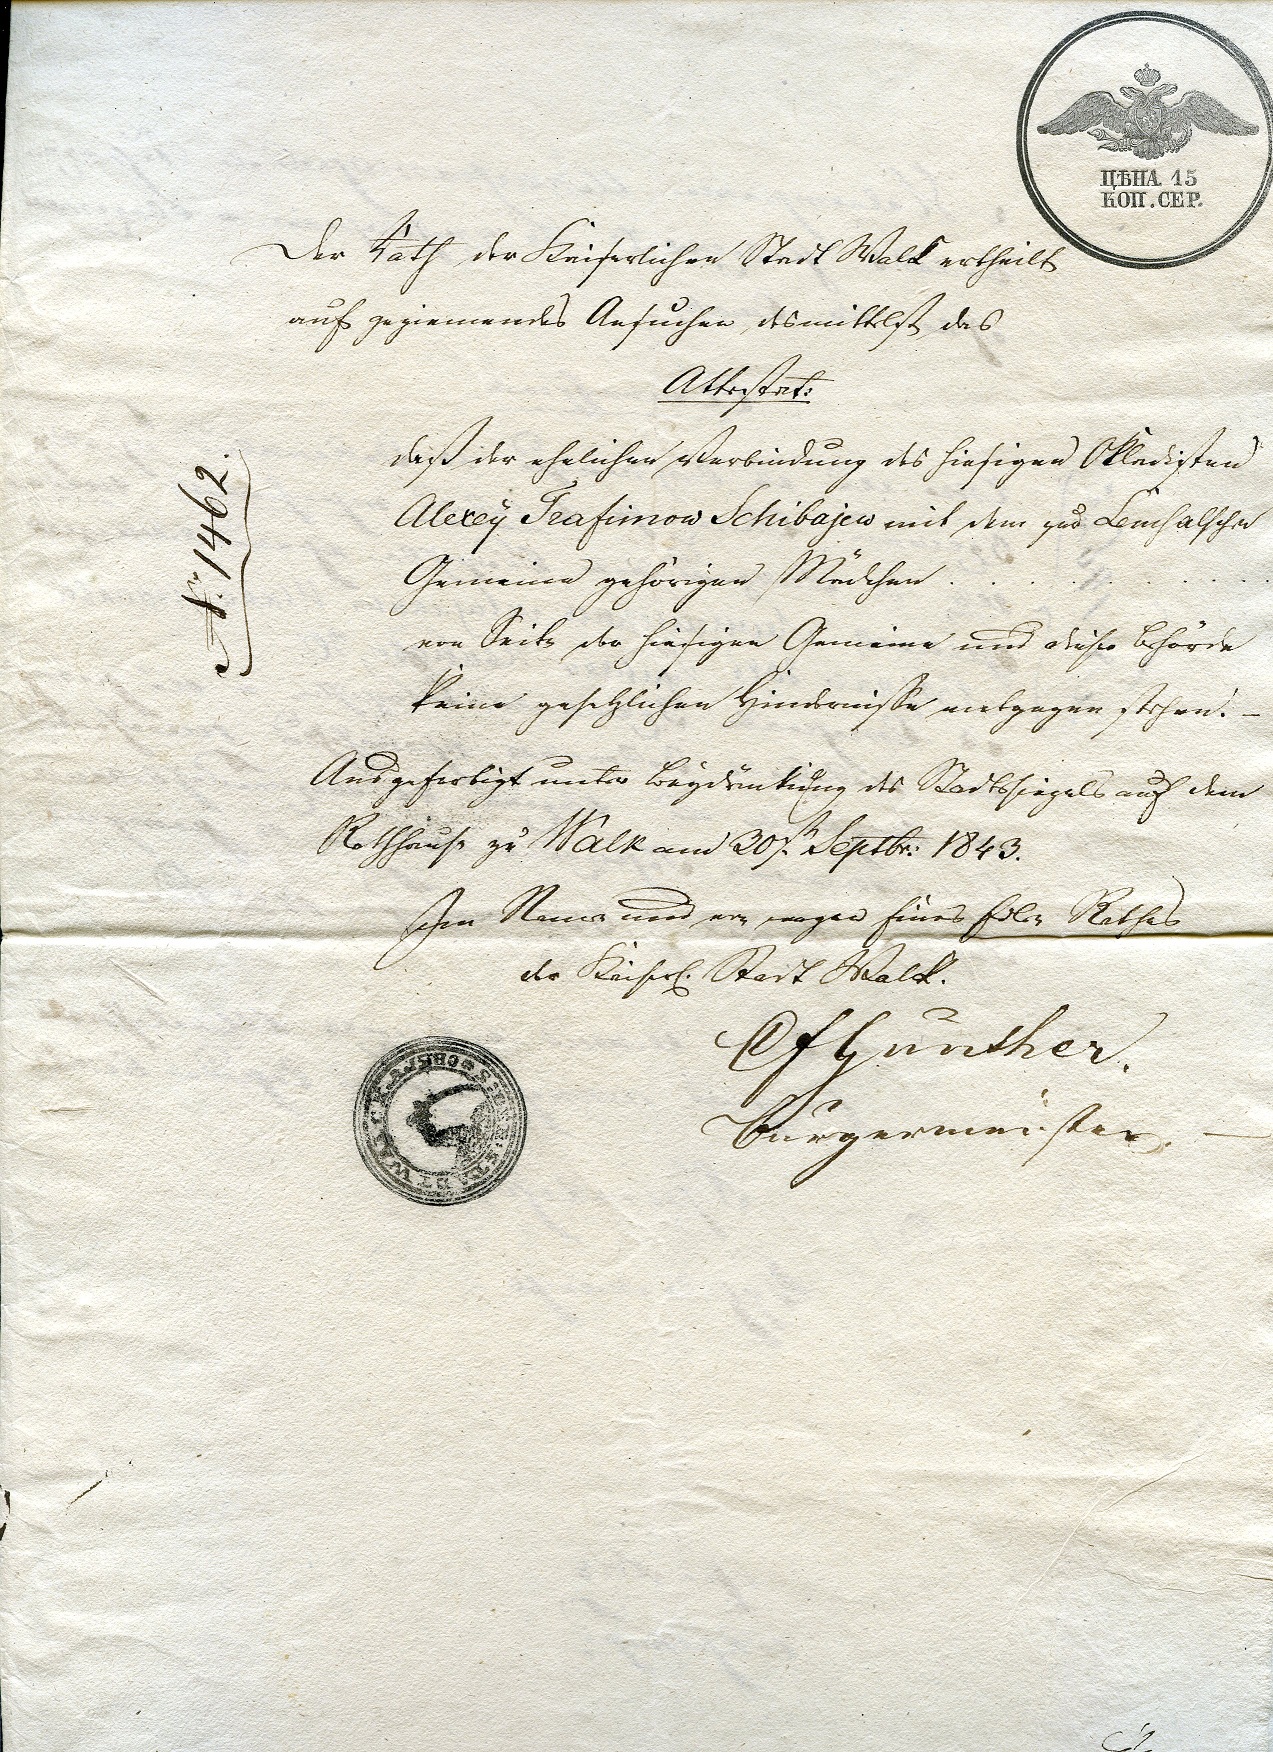 ЦѢНА 15
КОП. СЕР.
Der Rath der Kaiserlichen Stadt Walk ertheilt
auf geziemendes Ansuchen desmittelst das
Attestat:
daß der ehelichen Verbindung des hiesigen Okladisten
Alexey Trafimow Schibajew mit dem zur
Gemeine gehörigen Mädchen . . . . . . .
von Seite der hiesigen Gemeine und dieser Behörde
keine gesetzlichen Hindernisse entgegen stehen. —
№ 1462.
Ausgefertigt unter Beydrückung des Stadtsiegels auf dem
Rathhause zu Walk am 30st. Septbr: 1843.
Im Namen und von wegen Eines Edlen Rathes
der Kaiserl. Stadt Walk.
Günther.
Bürgermeister. —
STADT WALCK